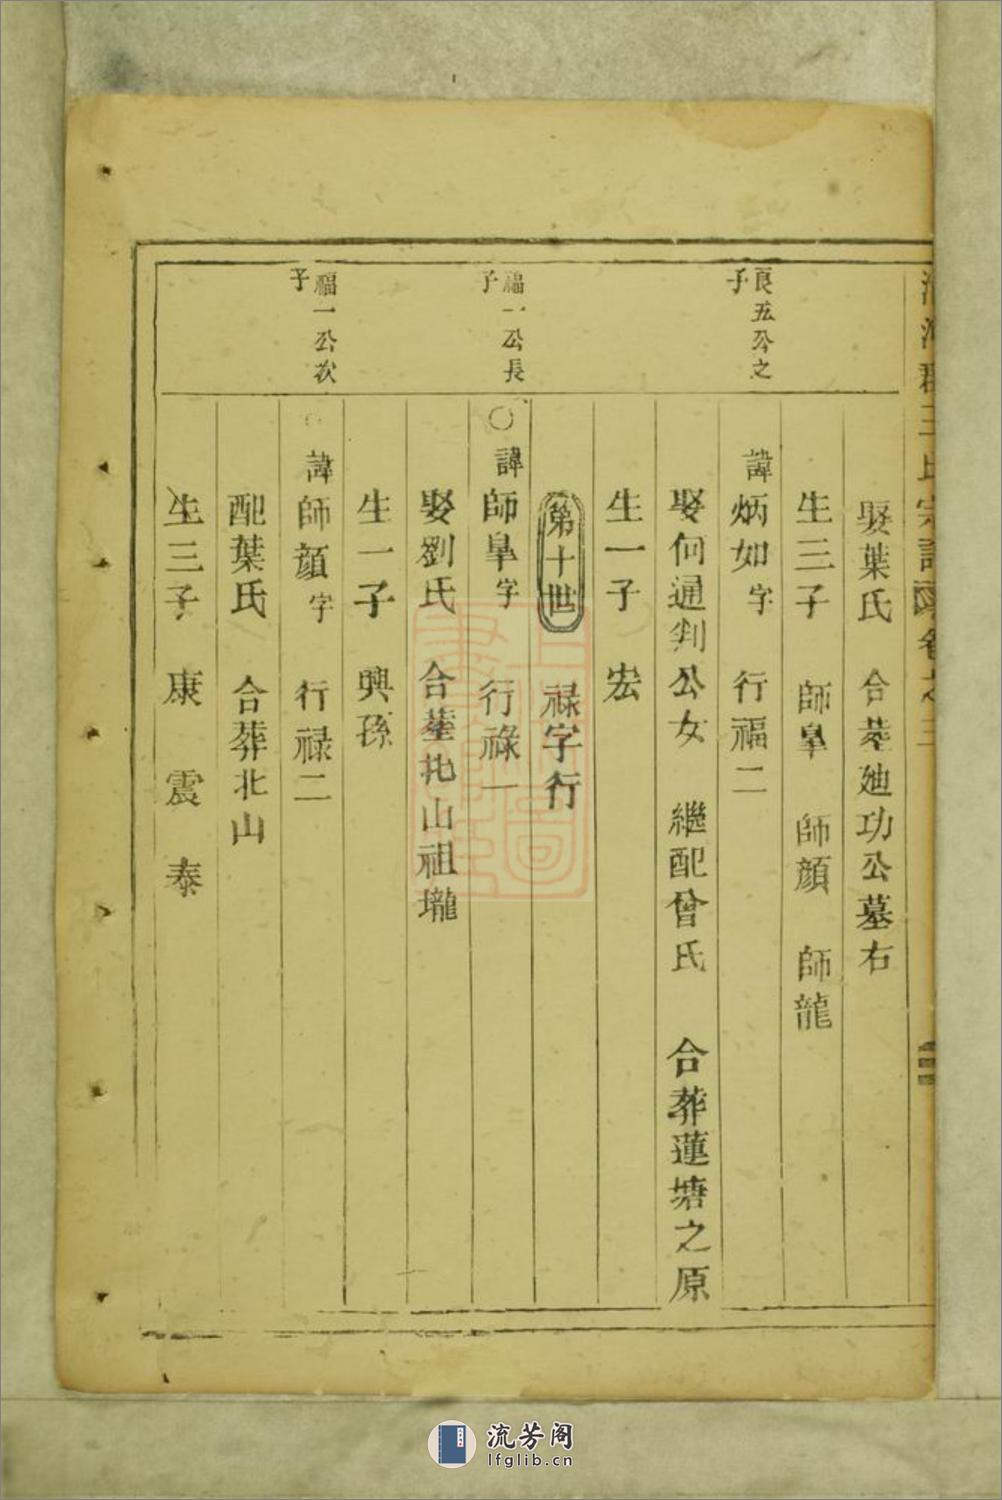 郡王氏宗譜卷之三
娶葉氏 合塟廸功公墓右
生三子 師皐 師顔 師龍
良五公之子
諱炳如字 行福二
娶何通判公女 繼配曾氏 合葬蓮塘之原
生一子 宏
第十世 禄字行
福一公長子
○諱師皐字 行祿一
娶劉氏 合塟北山祖壠
生一子 興孫
福一公次子
諱師顔字 行禄二
配葉氏 合葬北山
生三子 康 震 泰
流芳阁
lfglib.cn